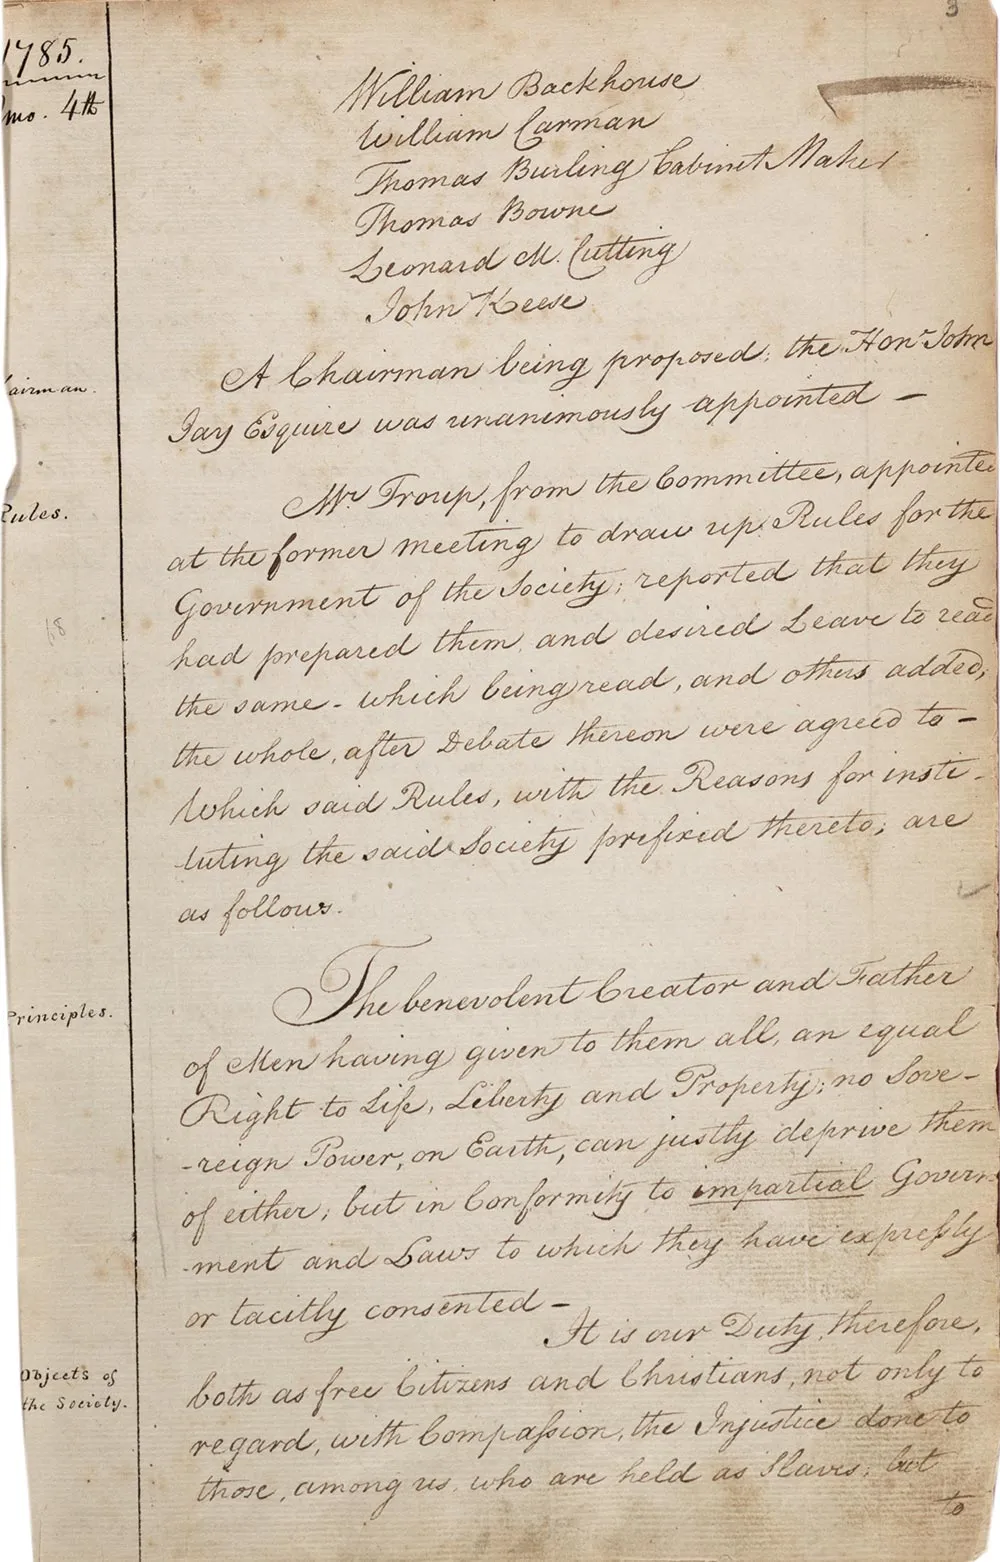 3
1785.
mo. 4th
William Backhouse
William Carman
Thomas Burling Cabinet Maker
Thomas Bowne
Leonard M. Cutting
John Keese
airman.
A Chairman being proposed; the Honr. John
Jay Esquire was unanimously appointed –
Rules.
Mr. Troup, from the Committee, appointed
at the former meeting to draw up Rules for the
Government of the Society; reported that they
had prepared them and desired Leave to read
the same – which being read, and others added,
the whole, after Debate thereon were agreed to –
Which said Rules, with the Reasons for insti-
tuting the said Society prefixed thereto; are
as follows.
Principles.
The benevolent Creator and Father
of Men having given to them all, an equal
Right to Life, Liberty and Property; no Sove-
-reign Power, on Earth, can justly deprive them
of either; but in Conformity to impartial Govern-
-ment and Laws to which they have expressly
or tacitly consented –
Objects of
the Society.
It is our Duty, therefore,
both as free Citizens and Christians, not only to
regard, with Compassion, the Injustice done to
those, among us, who are held as Slaves; but
to